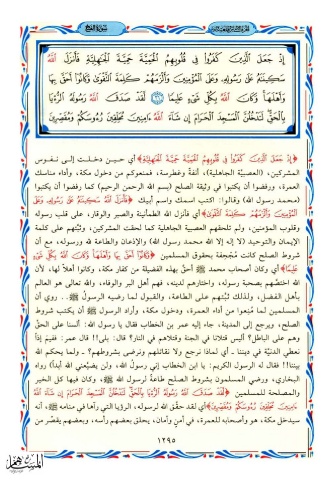 سورة الفتح
إِذْ جَعَلَ الَّذِينَ كَفَرُوا فِي قُلُوبِهِمُ الْحَمِيَّةَ حَمِيَّةَ الْجَاهِلِيَّةِ فَأَنزَلَ اللَّهُ
سَكِينَتَهُ عَلَىٰ رَسُولِهِ وَعَلَى الْمُؤْمِنِينَ وَأَلْزَمَهُمْ كَلِمَةَ التَّقْوَىٰ وَكَانُوا أَحَقَّ بِهَا
وَأَهْلَهَا وَكَانَ اللَّهُ بِكُلِّ شَيْءٍ عَلِيمًا لَقَدْ صَدَقَ اللَّهُ رَسُولَهُ الرُّؤْيَا
بِالْحَقِّ لَتَدْخُلُنَّ الْمَسْجِدَ الْحَرَامَ إِن شَاءَ اللَّهُ ءَامِنِينَ مُحَلِّقِينَ رُءُوسَكُمْ وَمُقَصِّرِينَ
﴿إِذْ جَعَلَ الَّذِينَ كَفَرُوا فِي قُلُوبِهِمُ الْحَمِيَّةَ حَمِيَّةَ الْجَاهِلِيَّةِ﴾ أي حين دخلت إلى نفوس
المشركين، (العصبيّة الجاهلية)، أنفة وغطرسة، فمنعوكم من دخول مكة، وأداء مناسك
العمرة، ورفضوا أن يكتبوا في وثيقة الصلح (بسم الله الرحمن الرحيم) كما رفضوا أن يكتبوا
(محمد رسول الله) وقالوا: اكتب اسمك واسم أبيك ﴿فَأَنزَلَ اللَّهُ سَكِينَتَهُ عَلَىٰ رَسُولِهِ وَعَلَى
الْمُؤْمِنِينَ وَأَلْزَمَهُمْ كَلِمَةَ التَّقْوَىٰ﴾ أي فأنزل الله الطمأنينة والصبر والوقار، على قلب رسوله
وقلوب المؤمنين، ولم تلحقهم العصبية الجاهلية كما لحقت المشركين، وثبَّتهم على كلمة
الإيمان والتوحيد (لا إله إلا الله محمد رسول الله) والإذعان والطاعة لله ورسوله، مع أن
شروط الصلح كانت مُجحفة بحقوق المسلمين ﴿وَكَانُوا أَحَقَّ بِهَا وَأَهْلَهَا وَكَانَ اللَّهُ بِكُلِّ شَيْءٍ
عَلِيمًا﴾ أي وكان أصحاب محمد ﷺ أحقَّ بهذه الفضيلة من كفار مكة، وكانوا أهلاً لها، لأن
الله اختصَّهم بصحبة رسوله، واختارهم لدينه، فهم أهل البر والوفاء، والله تعالى هو العالم
بأهل الفضل، ولذلك ثبَّتهم على الطاعة، والقبول لما رضيه الرسول ﷺ.. روي أن
المسلمين لما مُنِعوا من أداء العمرة، ودخول مكة، وأراد الرسول ﷺ أن يكتب شروط
الصلح، ويرجع إلى المدينة، جاء إليه عمر بن الخطاب فقال يا رسول الله: ألسنا على الحقِّ
وهم على الباطل؟ أليس قتلانا في الجنة وقتلاهم في النار؟ قال: بلى!! قال عمر: ففيمَ إذاً
نعطي الدنيَّة في ديننا - أي لماذا نرجع ولا نقاتلهم ونرضى بشروطهم؟ - ولما يحكم الله
بيننا!! فقال له الرسول الكريم: يا ابن الخطاب إني رسولُ الله، ولن يضيّعني الله أبداً) رواه
البخاري، ورضي المسلمون بشروط الصلح طاعةً لرسول الله ﷺ، وكان فيها كل الخير
والمصلحة للمسلمين ﴿لَقَدْ صَدَقَ اللَّهُ رَسُولَهُ الرُّؤْيَا بِالْحَقِّ لَتَدْخُلُنَّ الْمَسْجِدَ الْحَرَامَ إِن شَاءَ اللَّهُ
ءَامِنِينَ مُحَلِّقِينَ رُءُوسَكُمْ وَمُقَصِّرِينَ﴾ أي لقد حقَّق الله لرسوله، الرؤيا التي رآها في منامه ﷺ، أنه
سيدخل مكة، هو وأصحابه للعمرة، في أمنٍ وأمان، يحلق بعضهم رأسه، وبعضهم يقصّر من
١٢٩٥